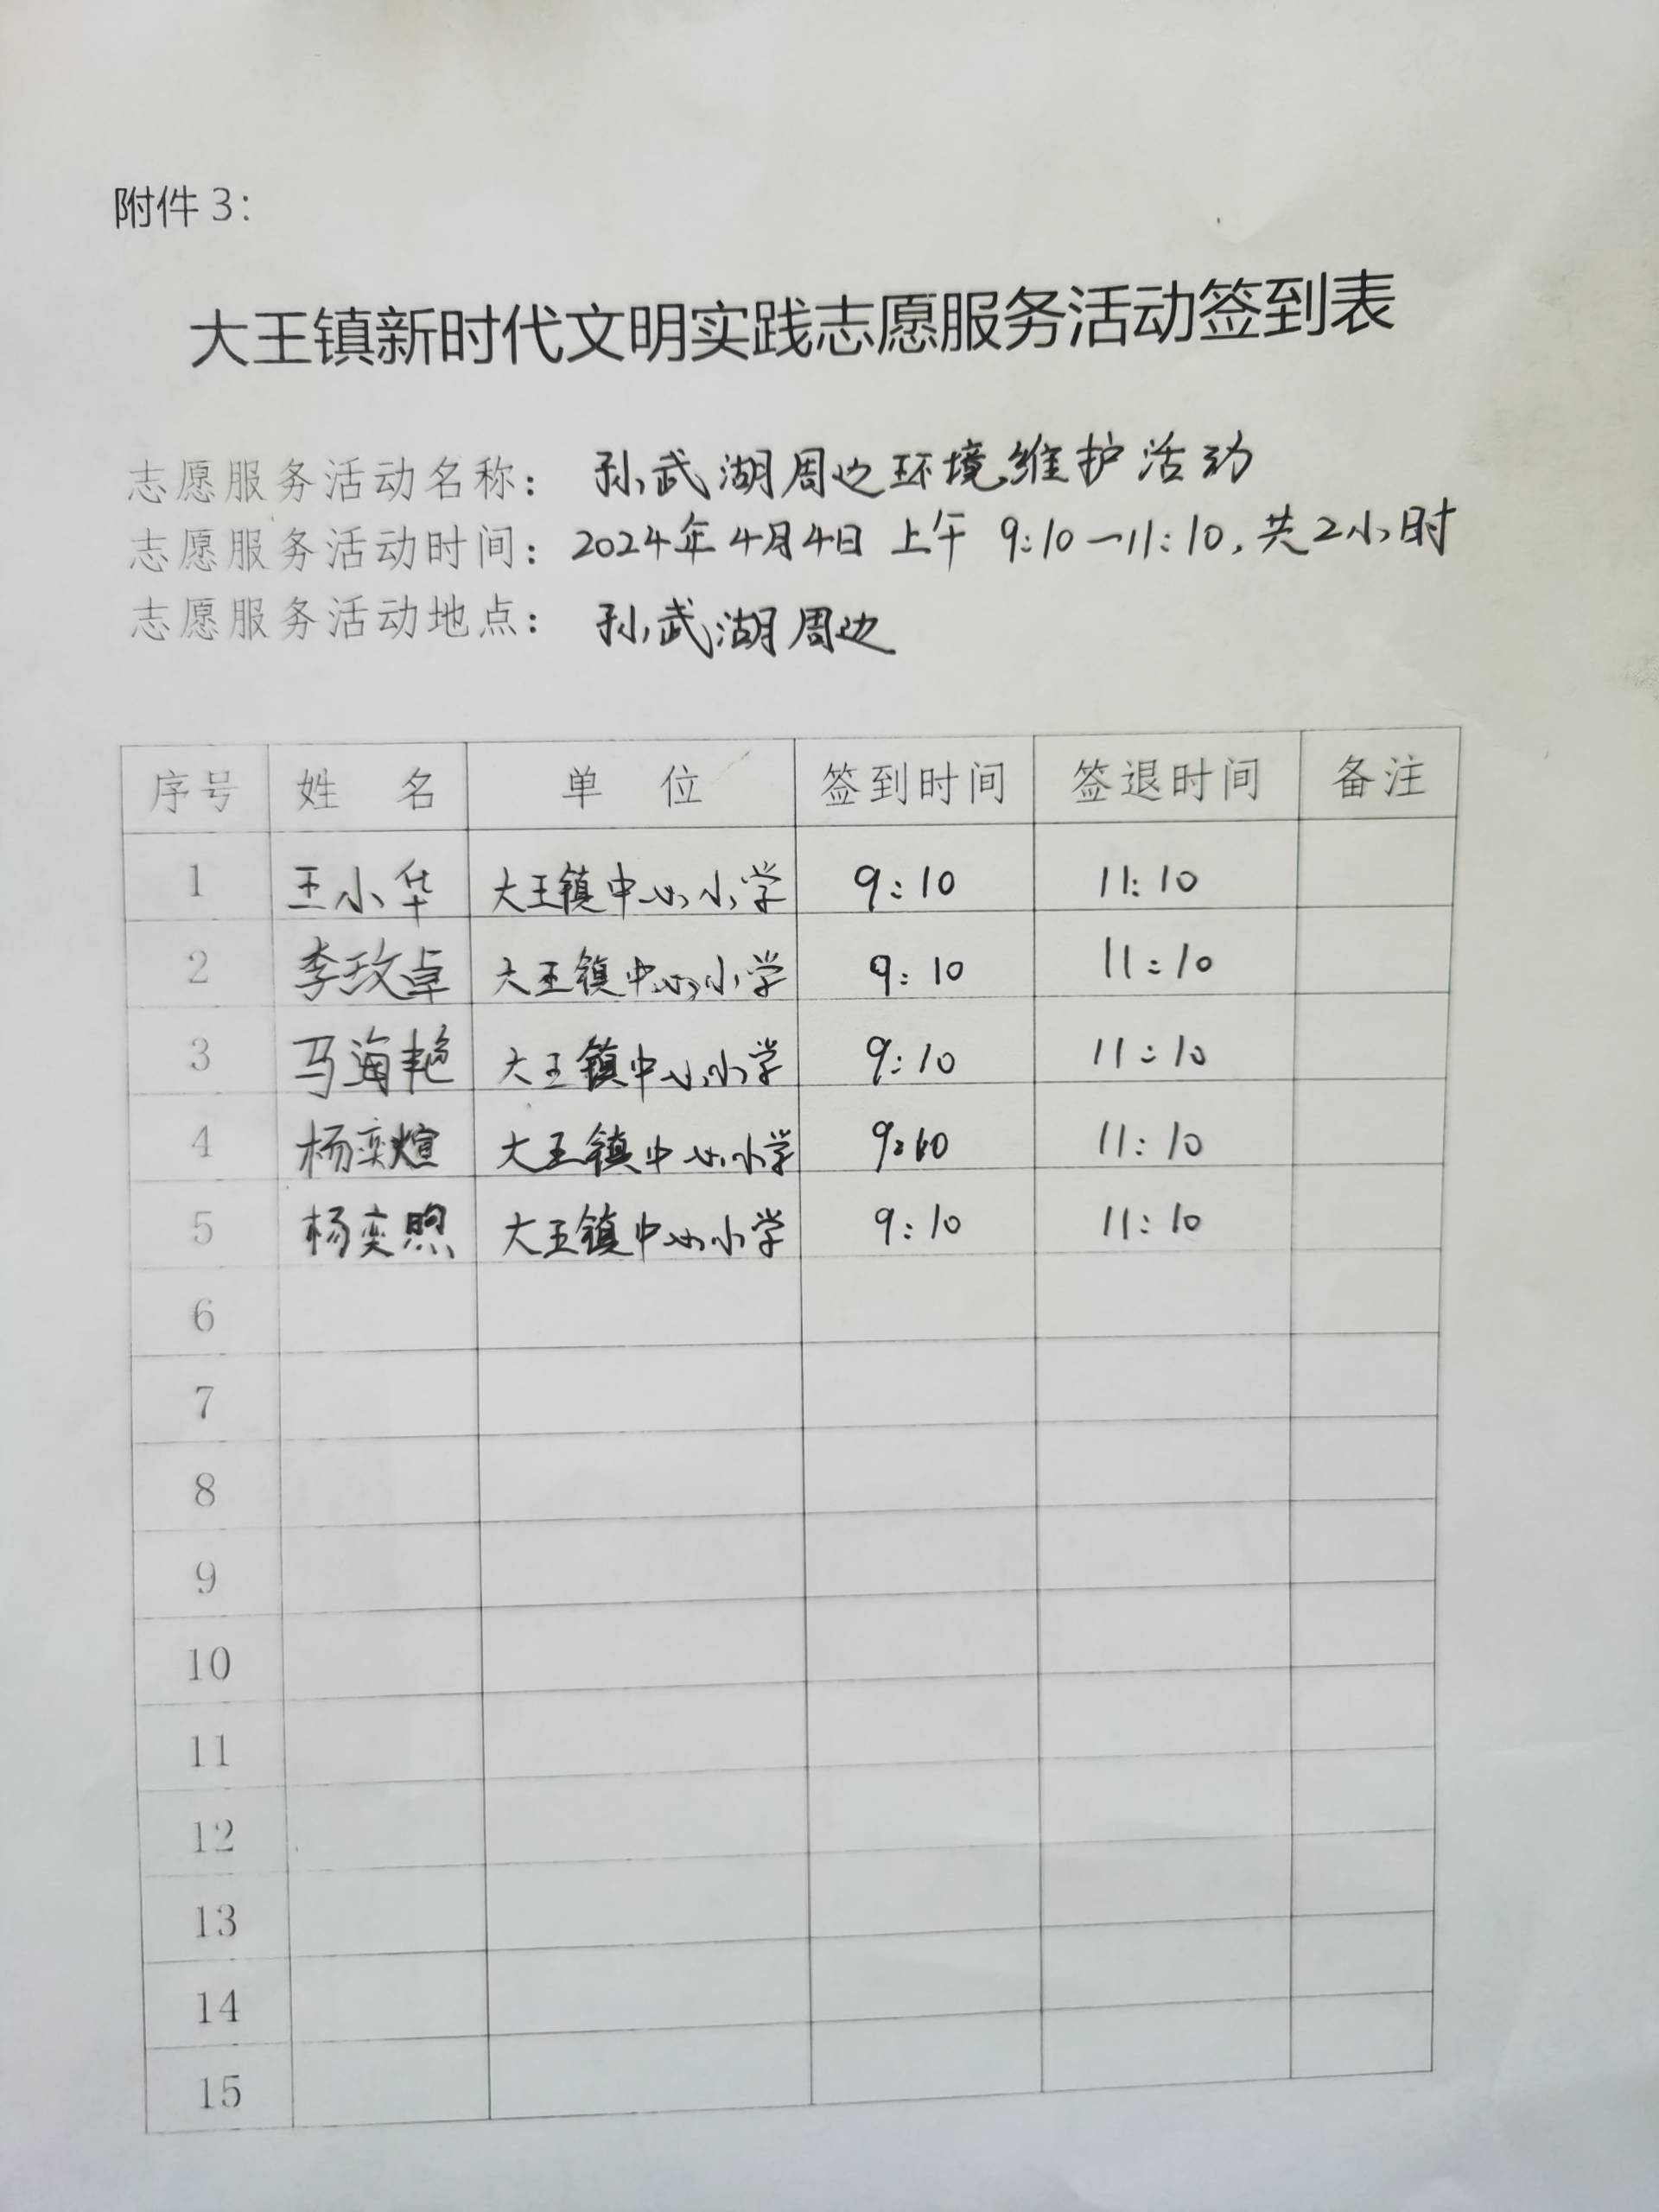 附件 3：
大王镇新时代文明实践志愿服务活动签到表
志愿服务活动名称： 孙武湖周边环境维护活动
志愿服务活动时间： 2024年4月4日 上午 9:10—11:10，共2小时
志愿服务活动地点： 孙武湖周边
序号 姓 名 单 位 签到时间 签退时间 备注
1 王小华 大王镇中心小学 9:10 11:10
2 李玫卓 大王镇中心小学 9:10 11:10
3 马海艳 大王镇中心小学 9:10 11:10
4 杨奕煊 大王镇中心小学 9:10 11:10
5 杨奕煦 大王镇中心小学 9:10 11:10
6
7
8
9
10
11
12
13
14
15